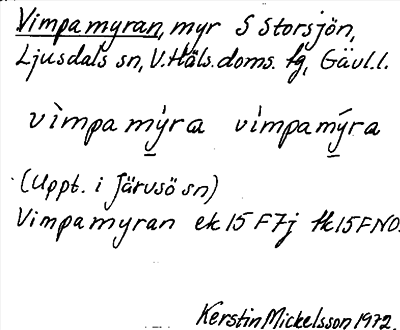 Vimpamyran, myr S Storsjön,
Ljusdals sn, V. Häls. doms. tg, Gävl. l.
vìmpamy̱ra vìmpamý̱ra
(Uppt. i Järvsö sn)
Vimpamyran ek 15 F 7j tk 15 F NO.
Kerstin Mickelsson 1972.